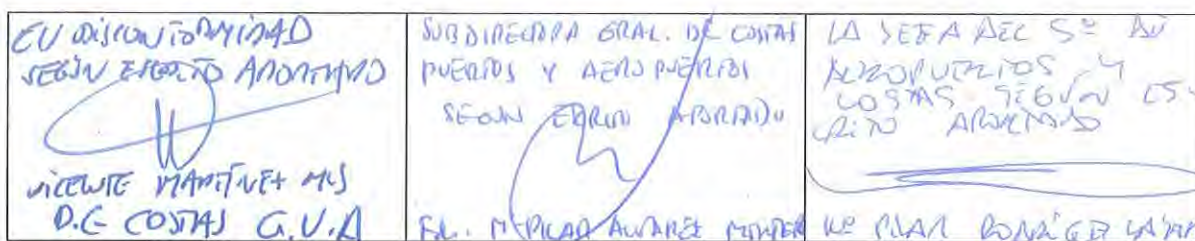 EN DISCONFORMIDAD
SEGÚN ESCRITO APORTADO
VICENTE MARTÍNEZ MUS
D.G COSTAS G.V.A
SUBDIRECTORA GRAL. DE COSTAS
PUERTOS Y AEROPUERTOS
SEGÚN ESCRITO APORTADO
Fdo. Mª PILAR
LA JEFA DEL Sº DE
AEROPUERTOS Y
COSTAS SEGÚN ES-
CRITO APORTADO
Mª PILAR